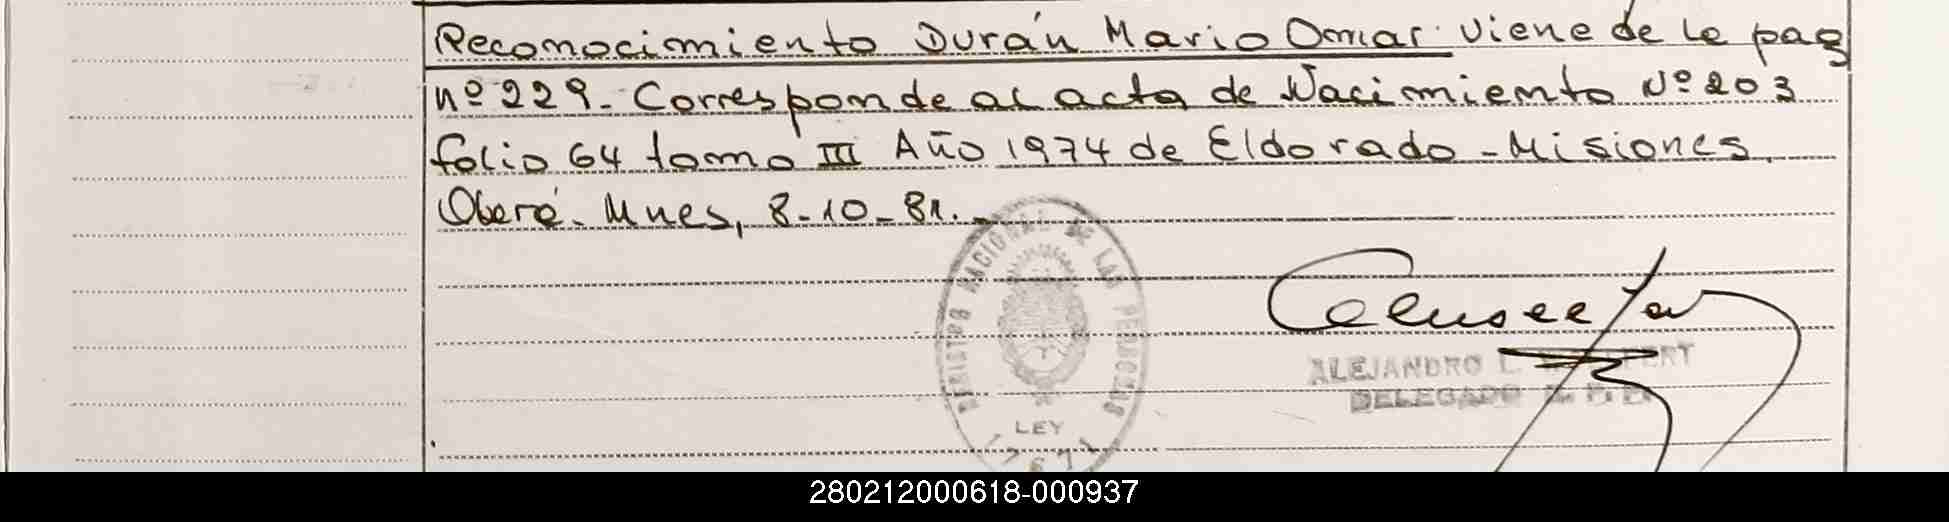 Reconocimiento Durán Mario Omar viene de le pag
nº 229. Corresponde al acta de Nacimiento Nº 203
folio 64 tomo III Año 1974 de Eldorado - Misiones.
Oberá. Mnes, 8-10-81.
REGISTRO NACIONAL DE LAS PERSONAS
LEY
17671
ALEJANDRO L.
DELEGADO
280212000618-000937